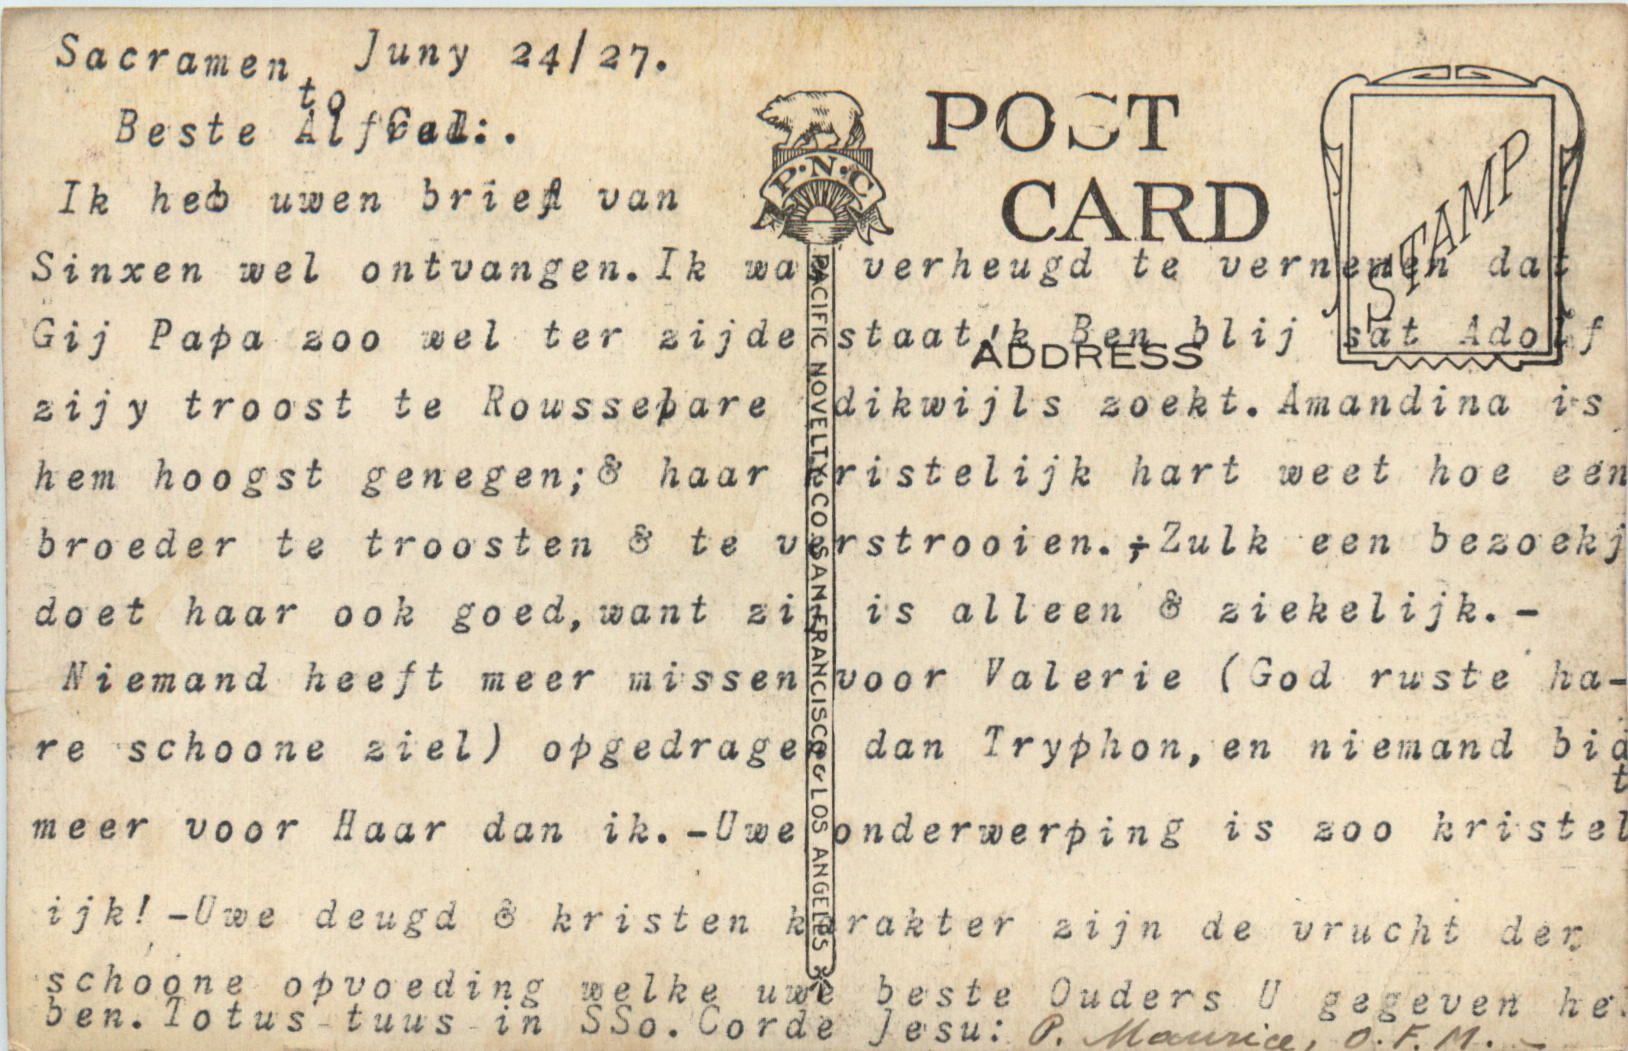 Sacramento Juny 24/27.
Beste Alfred:.
Ik heb uwen brief van
Sinxen wel ontvangen. Ik was verheugd te vernemen dat
Gij Papa zoo wel ter zijde staat,'k Ben blij sat Adolf
zijy troost te Roussebare dikwijls zoekt. Amandina is
hem hoogst genegen;& haar kristelijk hart weet hoe een
broeder te troosten & te verstrooien.;Zulk een bezoekj
doet haar ook goed, want zij is alleen & ziekelijk.-
Niemand heeft meer missen voor Valerie (God ruste ha-
re schoone ziel) opgedragen dan Tryphon, en niemand bidt
meer voor Haar dan ik.-Uwe onderwerping is zoo kristel
ijk!-Uwe deugd & kristen karakter zijn de vrucht der
schoone opvoeding welke uwe beste Ouders U gegeven heb
ben. Totus tuus in SSo. Corde Jesu: P. Maurice, O.F.M. -
POST
CARD
P·N·C
STAMP
ADDRESS
PACIFIC NOVELTY CO. SAN FRANCISCO & LOS ANGELES